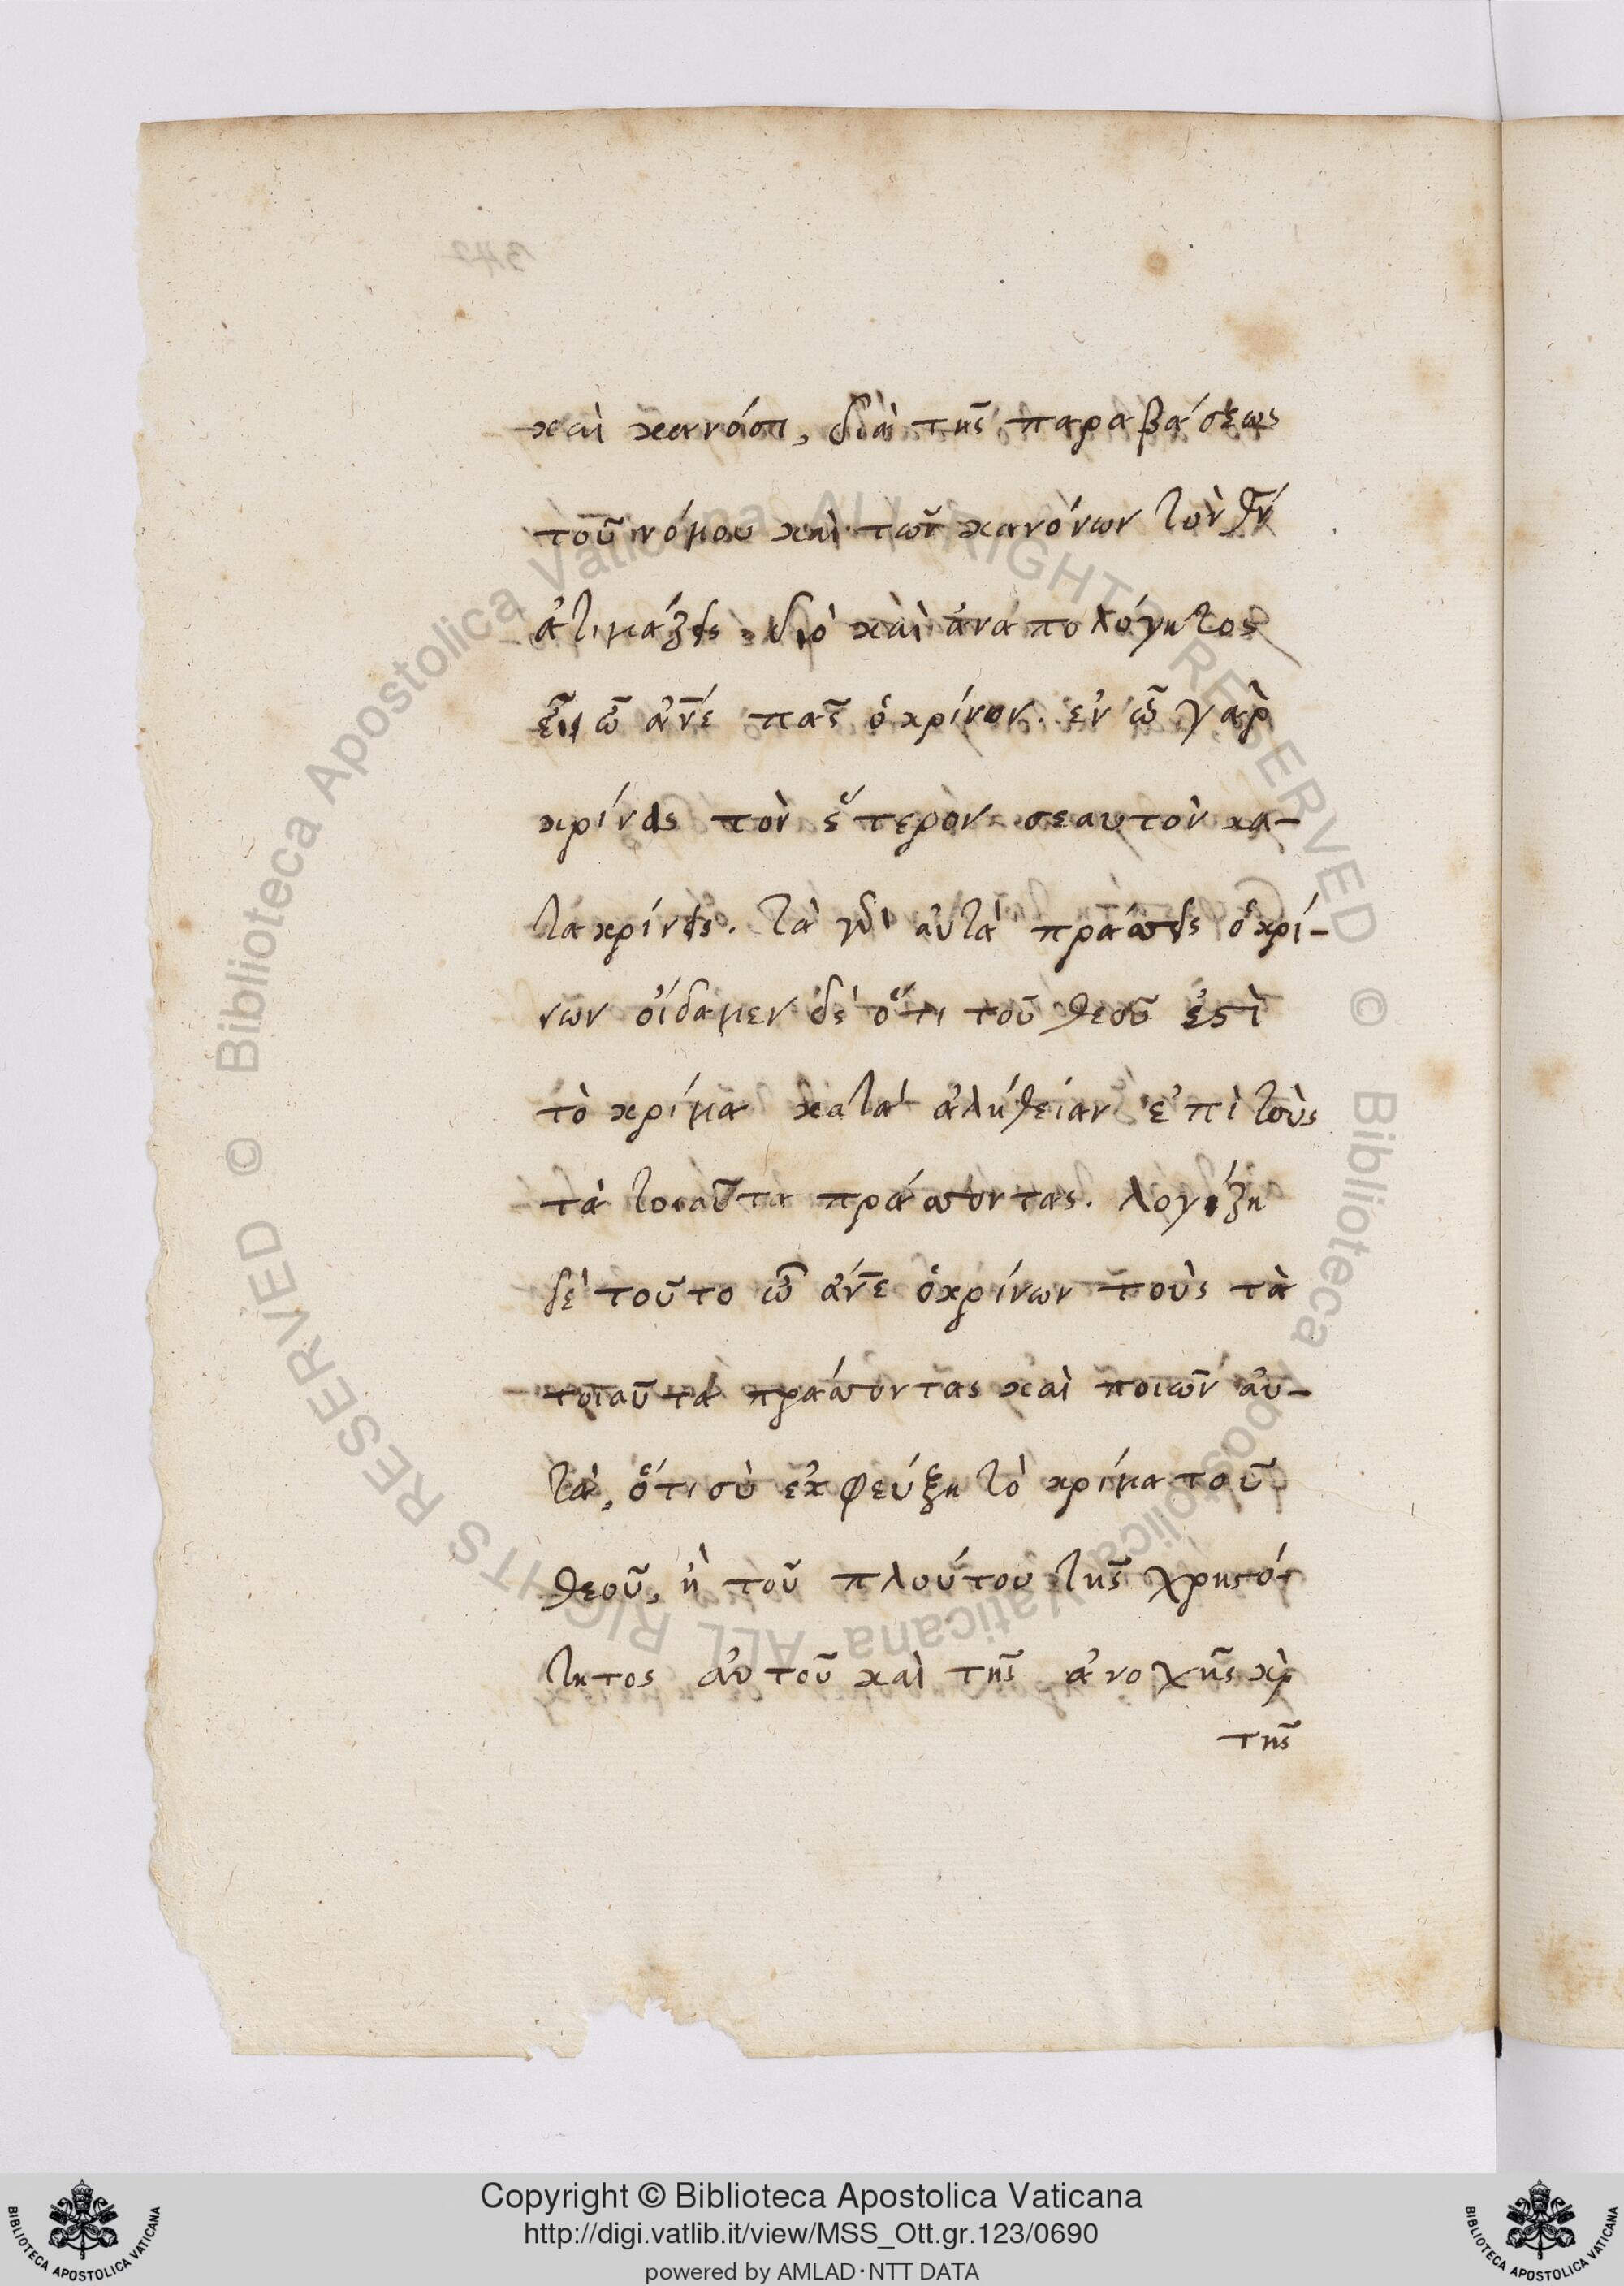 καὶ κανόσι, διὰ τῆς παραβάσεως
τοῦ νόμου καὶ τῶν κανόνων τὸν θν̅
ἀτιμάζεις, διὸ καὶ ἀναπολόγητος
εἶ ὦ ἄν̅ε πᾶς ὁ κρίνον. ἐν ὧ γὰρ
κρίνεις τὸν ἕτερὸν σεαυτὸν κα-
τακρίνεις. τὰ γὰρ αὐτὰ πράττεις ὁ κρί-
νων οἴδαμεν δὲ ὅτι τοῦ θεοῦ ἐστὶ
τὸ κρίμα κατὰ ἀλήθείαν ἐπὶ τοὺς
τὰ τοιαῦτα πράττοντας. λογίζη
δὲ τοῦτο ὦ ἄν̅ε ὁ κρίνων τοὺς τὰ
τοιαῦτα πράττοντας καὶ ποιῶν αὐ-
τὰ, ὅτι σὺ ἐκφεύξη τὸ κρίμα τοῦ
θεοῦ, ἢ τοῦ πλούτου τῆς χρηστό-
τητος αὐτοῦ καὶ τῆς ἀνοχῆς κὶ
τῆς
© Biblioteca Apostolica Vaticana ALL RIGHTS RESERVED © Biblioteca Apostolica Vaticana ALL RIGHTS RESERVED
Copyright © Biblioteca Apostolica Vaticana
http://digi.vatlib.it/view/MSS_Ott.gr.123/0690
powered by AMLAD·NTT DATA
BIBLIOTECA APOSTOLICA VATICANA
BIBLIOTECA APOSTOLICA VATICANA